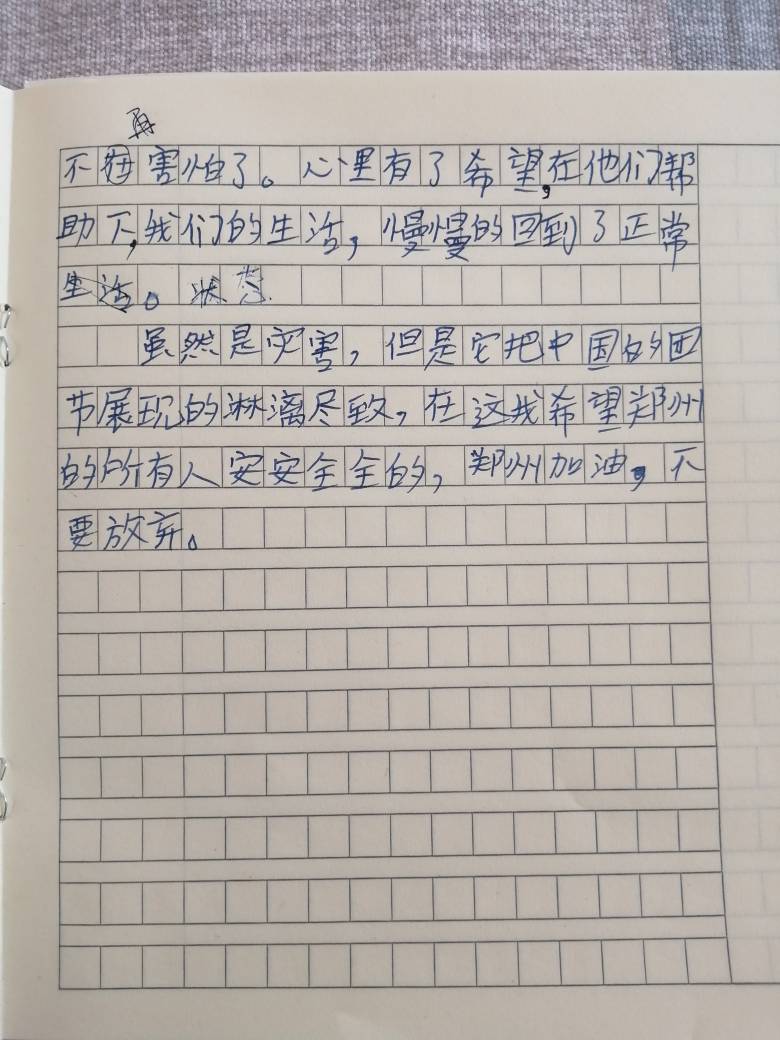 再
不在害怕了。心里有了希望,在他们帮
助下,我们的生活,慢慢的回到了正常
生活。状态
虽然是灾害,但是它把中国的团
节展现的淋漓尽致,在这我希望郑州
的所有人安安全全的,郑州加油,不
要放弃。